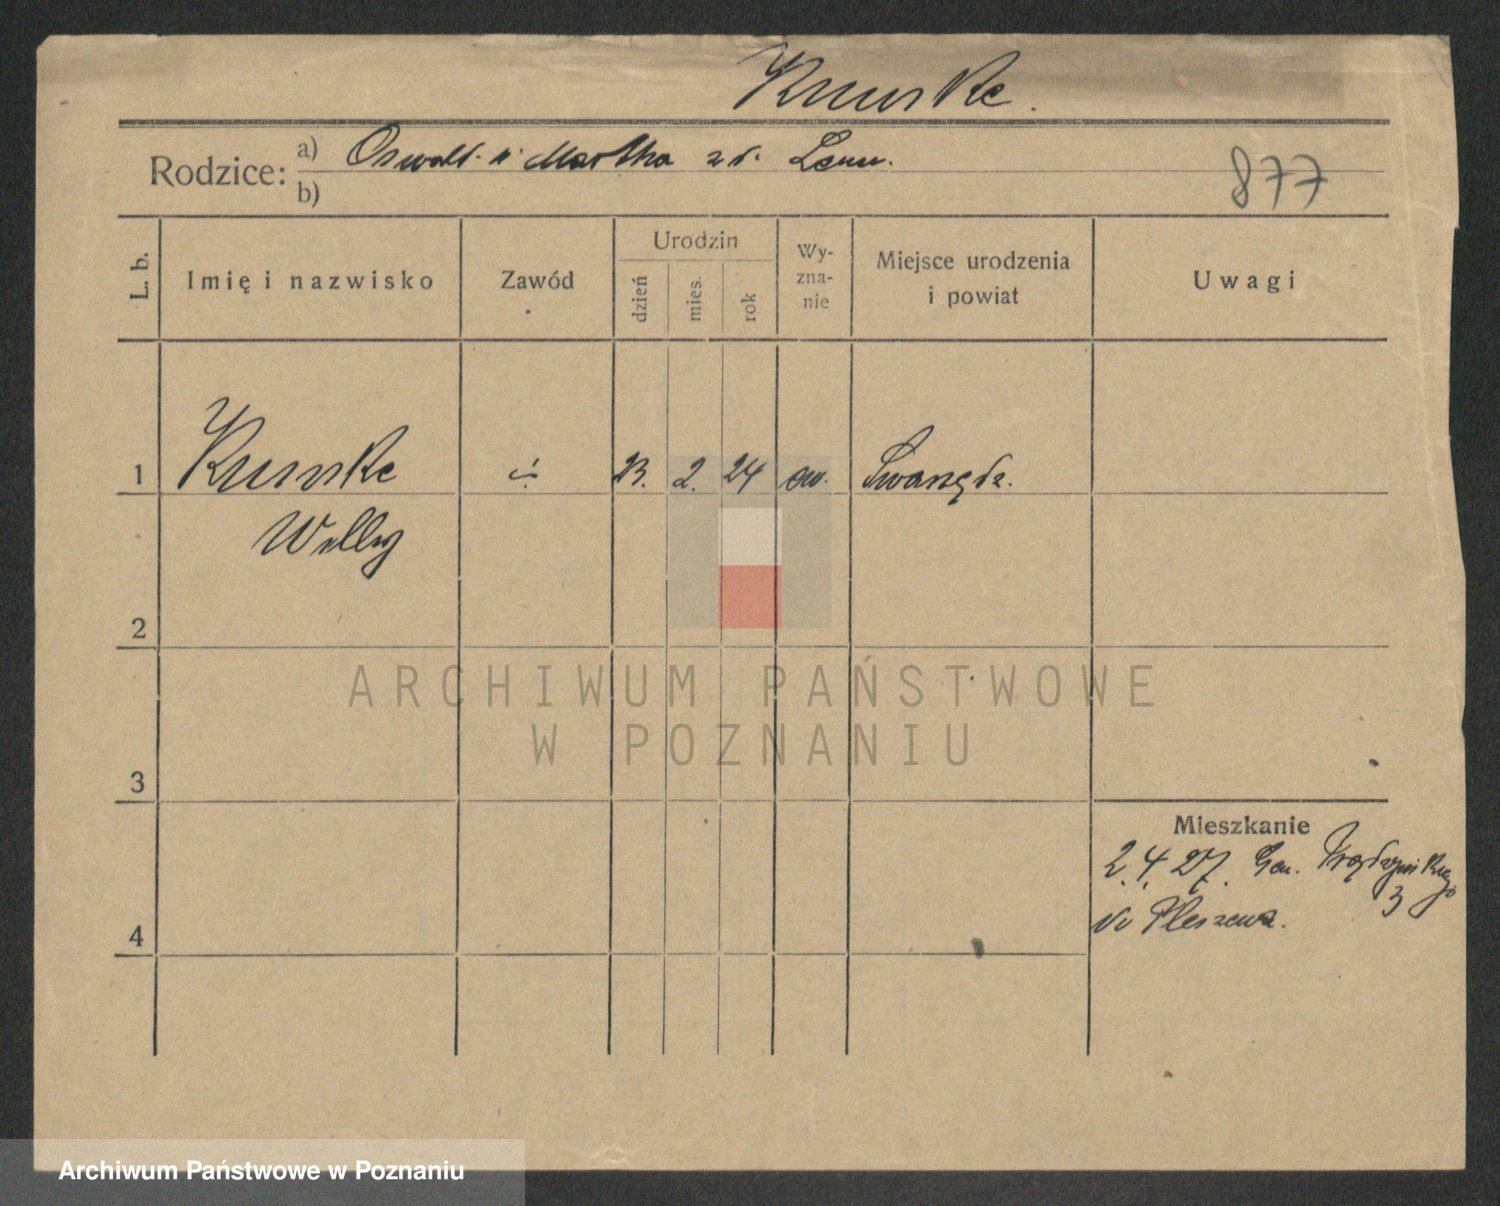 Kunske.
Rodzice: a) Oswald i Martha zd. Lenn.
b)
877
L. b.
Imię i nazwisko
Zawód
Urodzin
dzień
mies.
rok
Wy-
zna-
nie
Miejsce urodzenia
i powiat
Uwagi
1 Kunske 23. 2. 24 ew. Swarzędz.
Willy
2
3
4
Mieszkanie
2. 4. 27. Gen. 3
do Pleszewa.
ARCHIWUM PAŃSTWOWE
W POZNANIU
Archiwum Państwowe w Poznaniu